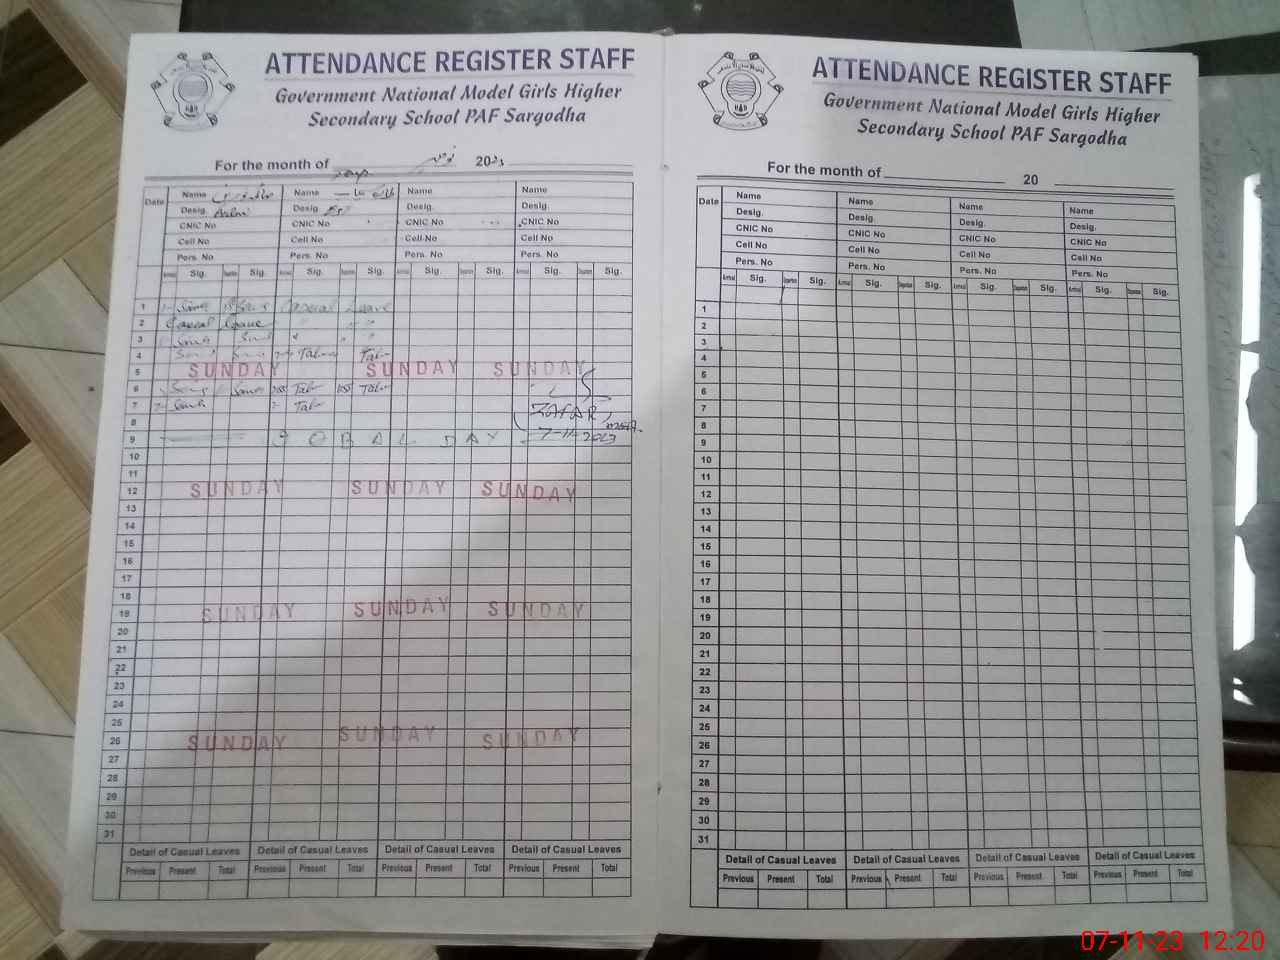 ATTENDANCE REGISTER STAFF
Government National Model Girls Higher
Secondary School PAF Sargodha
For the month of نومبر 20
Date Name Name Name Name
Desig. Desig. Desig. Desig.
CNIC No CNIC No CNIC No CNIC No
Cell No Cell No Cell No Cell No
Pers. No Pers. No Pers. No Pers. No
Arrival Sig. Departure Sig. Arrival Sig. Departure Sig. Arrival Sig. Departure Sig. Arrival Sig. Departure Sig.
1 Casual Leave
2 Casual Leave
3
4
5 SUNDAY SUNDAY SUNDAY
6
7 ZAFAR
8 7-11-2023
9 IQBAL DAY
10
11
12 SUNDAY SUNDAY SUNDAY
13
14
15
16
17
18
19 SUNDAY SUNDAY SUNDAY
20
21
22
23
24
25
26 SUNDAY SUNDAY SUNDAY
27
28
29
30
31
Detail of Casual Leaves Detail of Casual Leaves Detail of Casual Leaves Detail of Casual Leaves
Previous Present Total Previous Present Total Previous Present Total Previous Present Total
ATTENDANCE REGISTER STAFF
Government National Model Girls Higher
Secondary School PAF Sargodha
For the month of 20
Date Name Name Name Name
Desig. Desig. Desig. Desig.
CNIC No CNIC No CNIC No CNIC No
Cell No Cell No Cell No Cell No
Pers. No Pers. No Pers. No Pers. No
Arrival Sig. Departure Sig. Arrival Sig. Departure Sig. Arrival Sig. Departure Sig. Arrival Sig. Departure Sig.
1
2
3
4
5
6
7
8
9
10
11
12
13
14
15
16
17
18
19
20
21
22
23
24
25
26
27
28
29
30
31
Detail of Casual Leaves Detail of Casual Leaves Detail of Casual Leaves Detail of Casual Leaves
Previous Present Total Previous Present Total Previous Present Total Previous Present Total
07-11-23 12:20